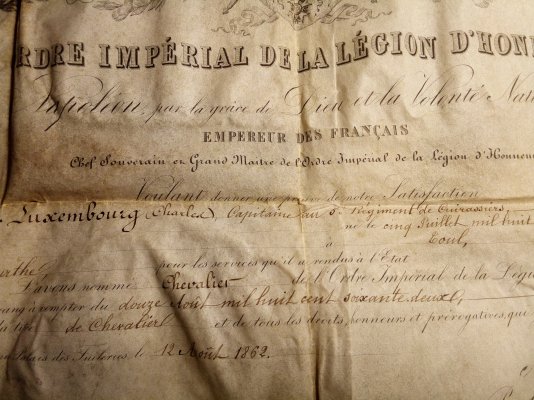 ORDRE IMPÉRIAL DE LA LÉGION D'HONN
Napoléon, par la grâce de Dieu et la Volonté Nat
EMPEREUR DES FRANÇAIS
Chef Souverain et Grand Maître de l'Ordre Impérial de la Légion d'Honneu
Voulant donner une preuve de notre Satisfaction
Luxembourg (Charles) Capitaine au 5e Régiment de Cuirassiers
né le cinq Juillet mil huit
à Toul,
urthe,
pour les services qu'il a rendus à l'Etat
L'avons nommé Chevalier de l'Ordre Impérial de la Légi
rang à compter du douze Août mil huit cent soixante deux,
de Chevalier et de tous les droits, honneurs et prérogatives, qui
Palais des Tuileries, le 12 Août 1862.